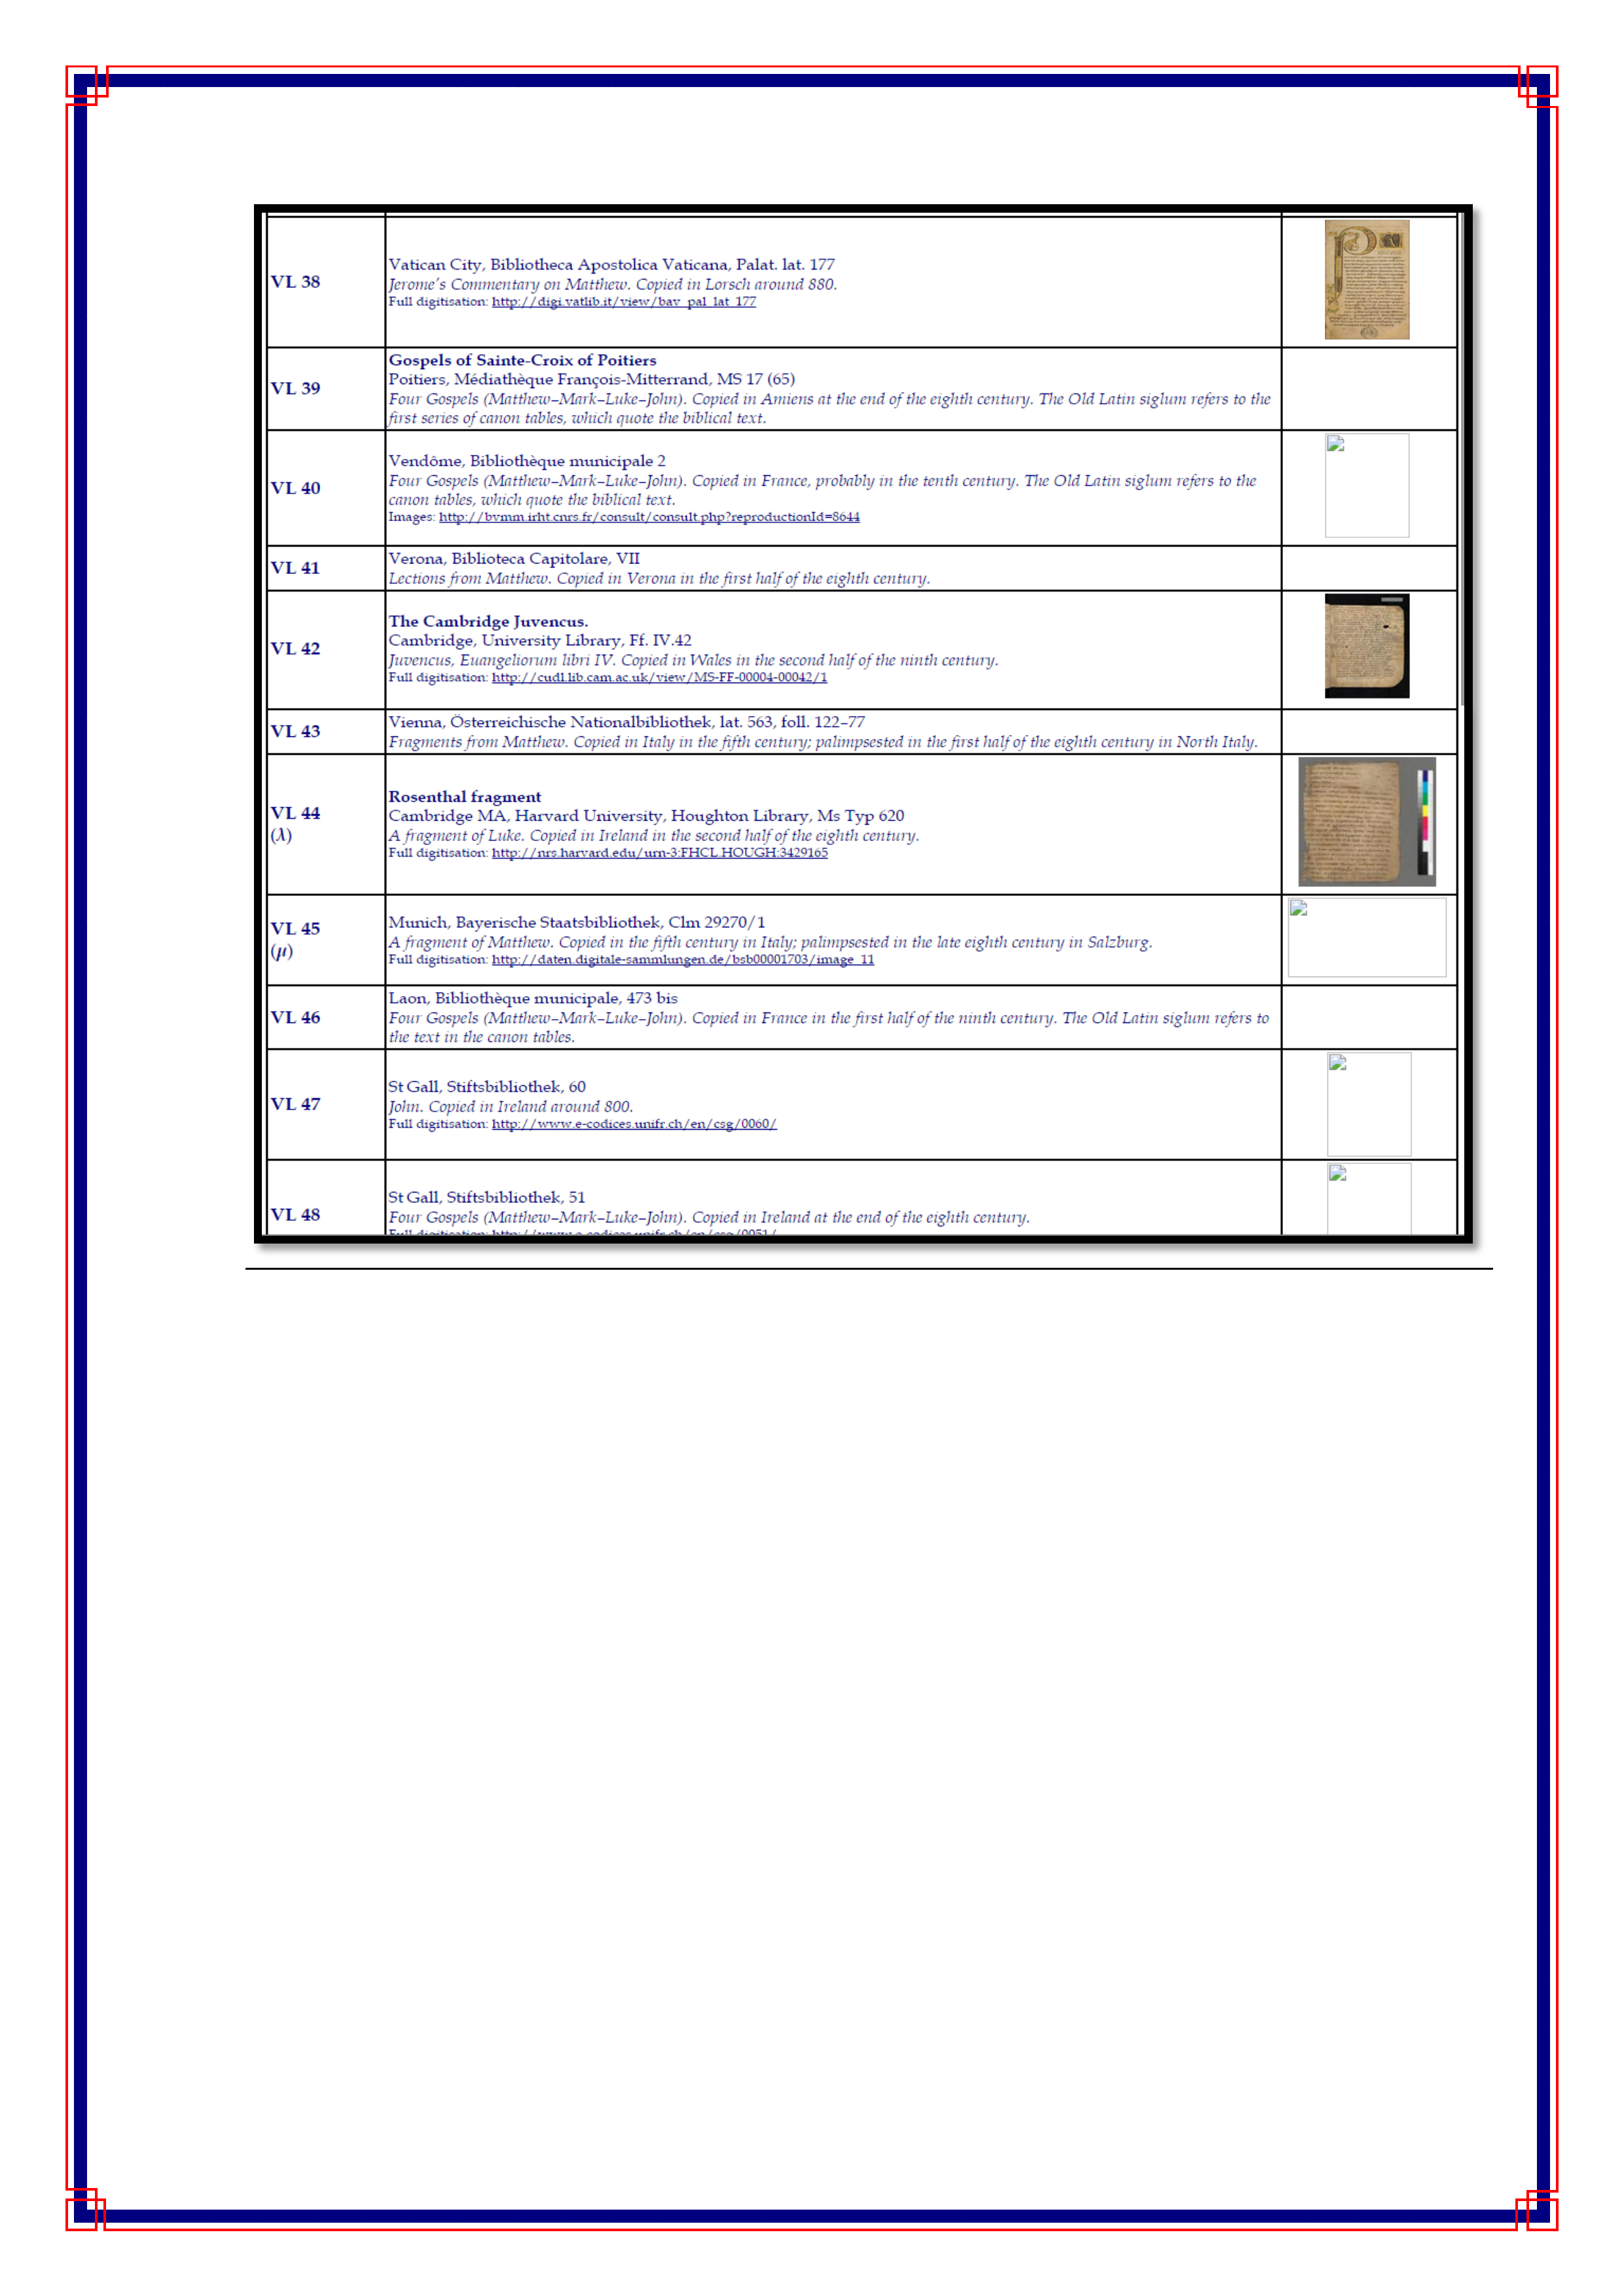 VL 38
Vatican City, Bibliotheca Apostolica Vaticana, Palat. lat. 177
Jerome's Commentary on Matthew. Copied in Lorsch around 880.
Full digitisation: http://digi.vatlib.it/view/bav_pal_lat_177
VL 39
Gospels of Sainte-Croix of Poitiers
Poitiers, Médiathèque François-Mitterrand, MS 17 (65)
Four Gospels (Matthew–Mark–Luke–John). Copied in Amiens at the end of the eighth century. The Old Latin siglum refers to the
first series of canon tables, which quote the biblical text.
VL 40
Vendôme, Bibliothèque municipale 2
Four Gospels (Matthew–Mark–Luke–John). Copied in France, probably in the tenth century. The Old Latin siglum refers to the
canon tables, which quote the biblical text.
Images: http://bvmm.irht.cnrs.fr/consult/consult.php?reproductionId=8644
VL 41
Verona, Biblioteca Capitolare, VII
Lections from Matthew. Copied in Verona in the first half of the eighth century.
VL 42
The Cambridge Juvencus.
Cambridge, University Library, Ff. IV.42
Juvencus, Euangeliorum libri IV. Copied in Wales in the second half of the ninth century.
Full digitisation: http://cudl.lib.cam.ac.uk/view/MS-FF-00004-00042/1
VL 43
Vienna, Österreichische Nationalbibliothek, lat. 563, foll. 122–77
Fragments from Matthew. Copied in Italy in the fifth century; palimpsested in the first half of the eighth century in North Italy.
VL 44
(λ)
Rosenthal fragment
Cambridge MA, Harvard University, Houghton Library, Ms Typ 620
A fragment of Luke. Copied in Ireland in the second half of the eighth century.
Full digitisation: http://nrs.harvard.edu/urn-3:FHCL.HOUGH:3429165
VL 45
(μ)
Munich, Bayerische Staatsbibliothek, Clm 29270/1
A fragment of Matthew. Copied in the fifth century in Italy; palimpsested in the late eighth century in Salzburg.
Full digitisation: http://daten.digitale-sammlungen.de/bsb00001703/image_11
VL 46
Laon, Bibliothèque municipale, 473 bis
Four Gospels (Matthew–Mark–Luke–John). Copied in France in the first half of the ninth century. The Old Latin siglum refers to
the text in the canon tables.
VL 47
St Gall, Stiftsbibliothek, 60
John. Copied in Ireland around 800.
Full digitisation: http://www.e-codices.unifr.ch/en/csg/0060/
VL 48
St Gall, Stiftsbibliothek, 51
Four Gospels (Matthew–Mark–Luke–John). Copied in Ireland at the end of the eighth century.
Full digitisation: http://www.e-codices.unifr.ch/en/csg/0051/